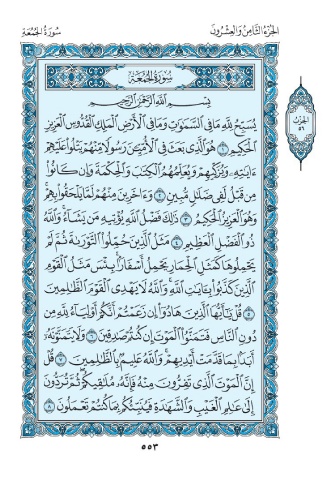 الجزء الثامن والعشرون
سورة الجمعة
سُورَةُ الجُمُعَةِ
بِسْمِ اللَّهِ الرَّحْمَٰنِ الرَّحِيمِ
يُسَبِّحُ لِلَّهِ مَا فِي السَّمَاوَاتِ وَمَا فِي الْأَرْضِ الْمَلِكِ الْقُدُّوسِ الْعَزِيزِ
الْحَكِيمِ ١ هُوَ الَّذِي بَعَثَ فِي الْأُمِّيِّينَ رَسُولًا مِّنْهُمْ يَتْلُو عَلَيْهِمْ
آيَاتِهِ وَيُزَكِّيهِمْ وَيُعَلِّمُهُمُ الْكِتَابَ وَالْحِكْمَةَ وَإِن كَانُوا
مِن قَبْلُ لَفِي ضَلَالٍ مُّبِينٍ ٢ وَآخَرِينَ مِنْهُمْ لَمَّا يَلْحَقُوا بِهِمْ
وَهُوَ الْعَزِيزُ الْحَكِيمُ ٣ ذَٰلِكَ فَضْلُ اللَّهِ يُؤْتِيهِ مَن يَشَاءُ وَاللَّهُ
ذُو الْفَضْلِ الْعَظِيمِ ٤ مَثَلُ الَّذِينَ حُمِّلُوا التَّوْرَاةَ ثُمَّ لَمْ
يَحْمِلُوهَا كَمَثَلِ الْحِمَارِ يَحْمِلُ أَسْفَارًا بِئْسَ مَثَلُ الْقَوْمِ
الَّذِينَ كَذَّبُوا بِآيَاتِ اللَّهِ وَاللَّهُ لَا يَهْدِي الْقَوْمَ الظَّالِمِينَ
٥ قُلْ يَا أَيُّهَا الَّذِينَ هَادُوا إِن زَعَمْتُمْ أَنَّكُمْ أَوْلِيَاءُ لِلَّهِ مِن
دُونِ النَّاسِ فَتَمَنَّوُا الْمَوْتَ إِن كُنتُمْ صَادِقِينَ ٦ وَلَا يَتَمَنَّوْنَهُ
أَبَدًا بِمَا قَدَّمَتْ أَيْدِيهِمْ وَاللَّهُ عَلِيمٌ بِالظَّالِمِينَ ٧ قُلْ
إِنَّ الْمَوْتَ الَّذِي تَفِرُّونَ مِنْهُ فَإِنَّهُ مُلَاقِيكُمْ ثُمَّ تُرَدُّونَ
إِلَىٰ عَالِمِ الْغَيْبِ وَالشَّهَادَةِ فَيُنَبِّئُكُم بِمَا كُنتُمْ تَعْمَلُونَ ٨
الحزب
٥٦
٥٥٣